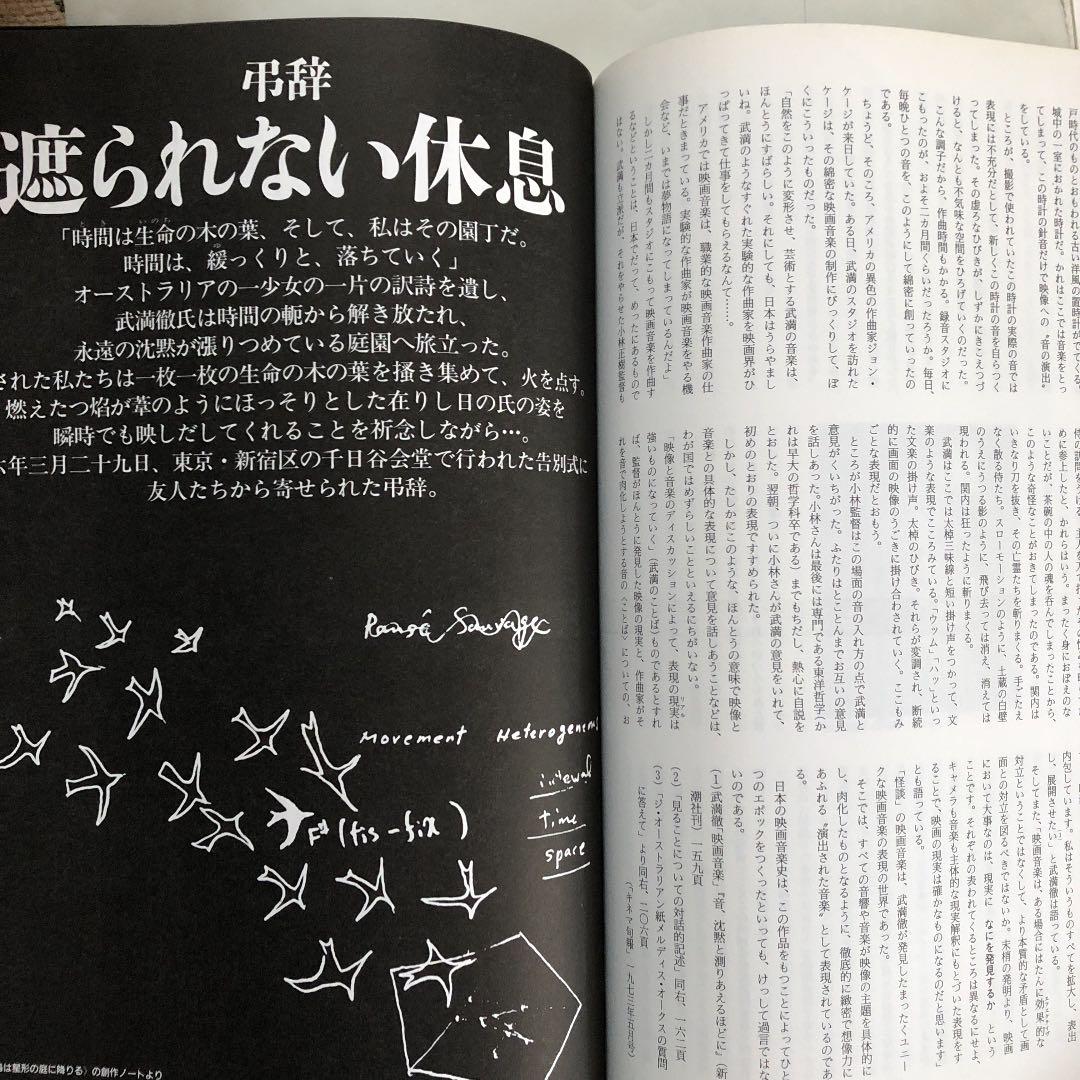 戸時代のものとおもわれる古い洋風の置時計がでてくる。
城中の一室におかれた時計だ。かれはここでは音楽をとっ
てしまって、この時計の針音だけで映像への〝音の演出〟
をしている。
ところが、撮影で使われていたこの時計の実際の音では
表現には不充分だとして、新しくこの時計の音を自らつく
ってしまった。その虚ろなひびきが、しずかにきこえつづ
けると、なんとも不気味な空間をひろげていくのだった。
こんな調子だから、作曲時間もかかる。録音スタジオに
こもったのが、およそ二カ月間くらいだったろうか。毎日、
毎晩ひとつの音を、このようにして綿密に創っていったの
である。
ちょうど、そのころ、アメリカの異色の作曲家ジョン・
ケージが来日していた。ある日、武満のスタジオを訪れた
ケージは、その綿密な映画音楽の制作にびっくりして、ぼ
くにこういったものだった。
「自然をこのように変形させ、芸術とする武満の音楽は、
ほんとうにすばらしい。それにしても、日本はうらやまし
いね。武満のようなすぐれた実験的な作曲家を映画界がひ
っぱってきて仕事をしてもらえるなんて……。
アメリカでは映画音楽は、職業的な映画音楽作曲家の仕
事だときまっている。実験的な作曲家が映画音楽をやる機
会など、いまでは夢物語になってしまっているんだよ」
しかし二カ月間もスタジオにこもって映画音楽を作曲す
るなどということは、日本でだって、めったにあるもので
はない。武満も立派だが、それをやらせた小林正樹監督も
めに参上したと、かれらはいう。まったく身におぼえのな
いことだが、茶碗の中の人の魂を呑んでしまったことから、
このような奇怪なことがおきてしまったのである。関内は
いきなり刀を抜き、その亡霊たちを斬りまくる。手ごたえ
なく散る侍たち。スローモーションのように、土蔵の白壁
のうえにうつる影のように、飛び去っては消え、消えては
現われる。関内は狂ったように斬りまくる。
武満はここでは太棹三味線と短い掛け声をつかって、文
楽のような表現でこころみている。「ウッム」「ハッ」といっ
た文楽の掛け声。太棹のひびき。それらが変調され、断続
的に画面の映像のうごきに掛け合わされていく。ここもみ
ごとな表現だとおもう。
ところが小林監督はこの場面の音の入れ方の点で武満と
意見がくいちがった。ふたりはとことんまでお互いの意見
を話しあった。小林さんは最後には専門である東洋哲学（か
れは早大の哲学科卒である）までもちだし、熱心に自説を
とおした。翌朝、ついに小林さんが武満の意見をいれて、
初めのとおりの表現ですすめられた。
しかし、たしかにこのような、ほんとうの意味で映像と
音楽との具体的な表現について意見を話しあうことなどは、
わが国ではめずらしいことといえるにちがいない。
「映像と音楽のディスカッションによって、表現の現実は
リアル
強いものになっていく」（武満のことば）ものであるとすれ
ば、監督がほんとうに発見した映像の現実と、作曲家がそ
れを音で肉化しようとする音の〈ことば〉についての、お
内包しています。私はそういうものすべてを拡大し、表出
し、展開させたい」と武満徹は語っている。
そしてまた、「映画音楽は、ある場合にはたんに効果的な
対立ということではなくして、より本質的な矛盾として画
面との対立を図るべきではないか。末梢の発明より、映画
において大事なのは、現実になにを発見するかという
ことです。それぞれの表われてくるところは異なるにせよ、
キャメラも音楽も主体的な現実解釈にもとづいた表現をす
ることで、映画の現実は確かなものになるのだと思います」
とも語っている。
「怪談」の映画音楽は、武満徹が発見したまったくユニー
クな映画音楽の表現の世界であった。
そこでは、すべての音響や音楽が映像の主題を具体的に
し、肉化したものとなるように、徹底的に緻密で想像力に
あふれる〝演出された音楽〟として表現されているのであ
る。
日本の映画音楽史は、この作品をもつことによってひと
つのエポックをつくったといっても、けっして過言ではな
いのである。
（1）武満徹「映画音楽」『音、沈黙と測りあえるほどに』（新
潮社刊）一五九頁
（2）「見ることについての対話的記述」同右、一六二頁
（3）「ジ・オーストラリアン紙メルディス・オークスの質問
に答えて」より同右、二〇六頁
（『キネマ旬報』一九七三年五月号）
弔辞
遮られない休息
「時間は生命の木の葉、そして、私はその園丁だ。
時間は、緩っくりと、落ちていく」
オーストラリアの一少女の一片の訳詩を遺し、
武満徹氏は時間の軛から解き放たれ、
永遠の沈黙が漲りつめている庭園へ旅立った。
された私たちは一枚一枚の生命の木の葉を掻き集めて、火を点す。
燃えたつ焰が葦のようにほっそりとした在りし日の氏の姿を
瞬時でも映しだしてくれることを祈念しながら…。
六年三月二十九日、東京・新宿区の千日谷会堂で行われた告別式に
友人たちから寄せられた弔辞。
Movement
interval
time
space
F# (fis-fix)
は星形の庭に降りる〉の創作ノートより